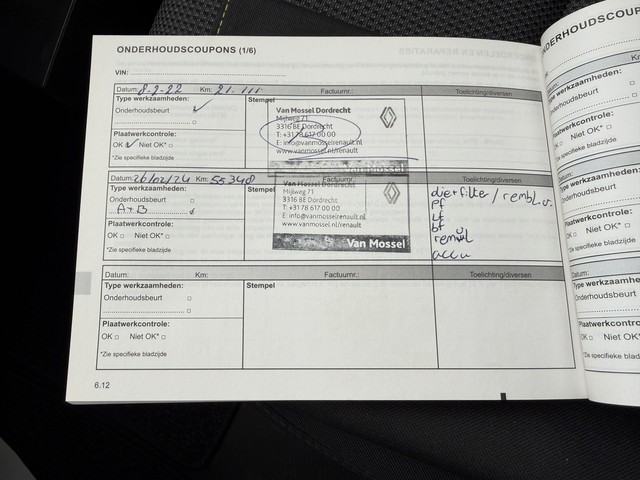 ONDERHOUDSCOUPONS (1/6)
VIN:
Datum: 8-2-22 Km: 21.111 Factuurnr.: Toelichting/diversen
Type werkzaamheden:
Onderhoudsbeurt
Plaatwerkcontrole:
OK Niet OK*
*Zie specifieke bladzijde
Stempel
Van Mossel Dordrecht
Mijlweg 71
3316 BE Dordrecht
T: +31 78 617 00 00
E: info@vanmosselrenault.nl
www.vanmossel.nl/renault
Van Mossel
Datum: 26/02/24 Km: 55348 Factuurnr.: Toelichting/diversen
Type werkzaamheden:
Onderhoudsbeurt
A+B
Plaatwerkcontrole:
OK Niet OK*
*Zie specifieke bladzijde
Van Mossel Dordrecht
Mijlweg 71
3316 BE Dordrecht
T: +31 78 617 00 00
E: info@vanmosselrenault.nl
www.vanmossel.nl/renault
Van Mossel
pf
bf
accu
Datum: Km: Factuurnr.: Toelichting/diversen
Type werkzaamheden:
Onderhoudsbeurt
Plaatwerkcontrole:
OK Niet OK*
*Zie specifieke bladzijde
Stempel
6.12
Type werkzaamheden:
Onderhoudsbeurt
Plaatwerkcontrole:
OK Niet OK*
Type werkzaamheden:
Onderhoudsbeurt
Plaatwerkcontrole:
OK Niet OK*
Datum:
Type werkzaamheden:
Onderhoudsbeurt
Plaatwerkcontrole:
OK Niet OK*